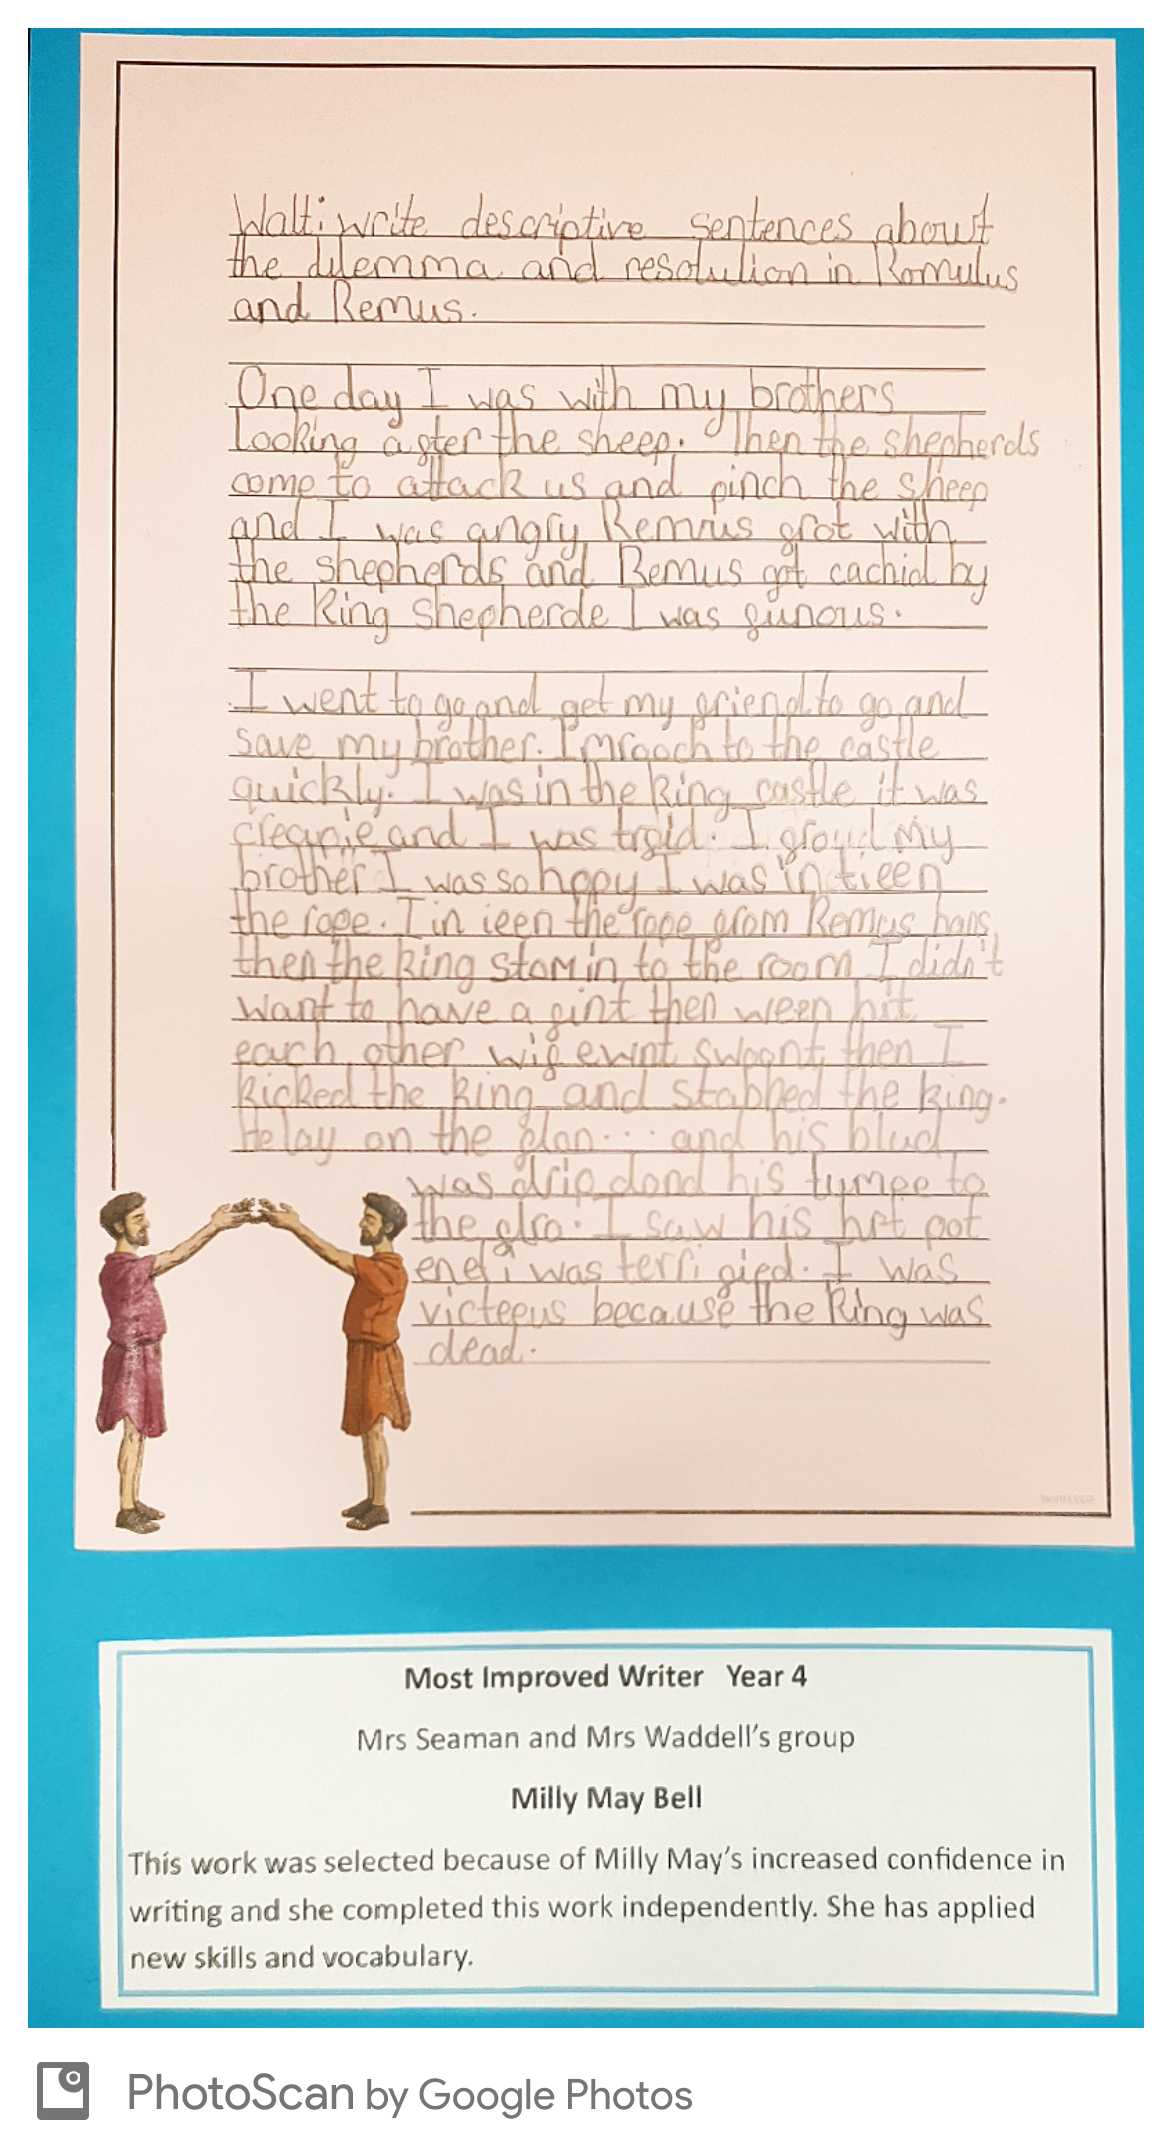 Walt: write descriptive sentences about
the dilemma and resolution in Romulus
and Remus.
One day I was with my brothers
Looking after the sheep. Then the shepherds
come to attack us and pinch the sheep
and I was angry Remus frot with
the shepherds and Remus got cachid by
the King Shepherde I was furious.
I went to go and get my friend to go and
save my brother. I mrooch to the castle
quickly. I was in the King castle it was
creapie and I was traid. I froud my
brother I was so happy I was in tieen
the rope. I in ieen the rope from Remus hans
then the king stom in to the room I didn't
want to have a fint then ween hit
each other wif ewnt swoont then I
kicked the king and stabbed the king.
He lay on the flan... and his blud
was drip dond his tumpe to
the flro. I saw his hrt pot
end i was terrified. I was
victeeus because the King was
dead.
Most Improved Writer Year 4
Mrs Seaman and Mrs Waddell's group
Milly May Bell
This work was selected because of Milly May's increased confidence in
writing and she completed this work independently. She has applied
new skills and vocabulary.
PhotoScan by Google Photos